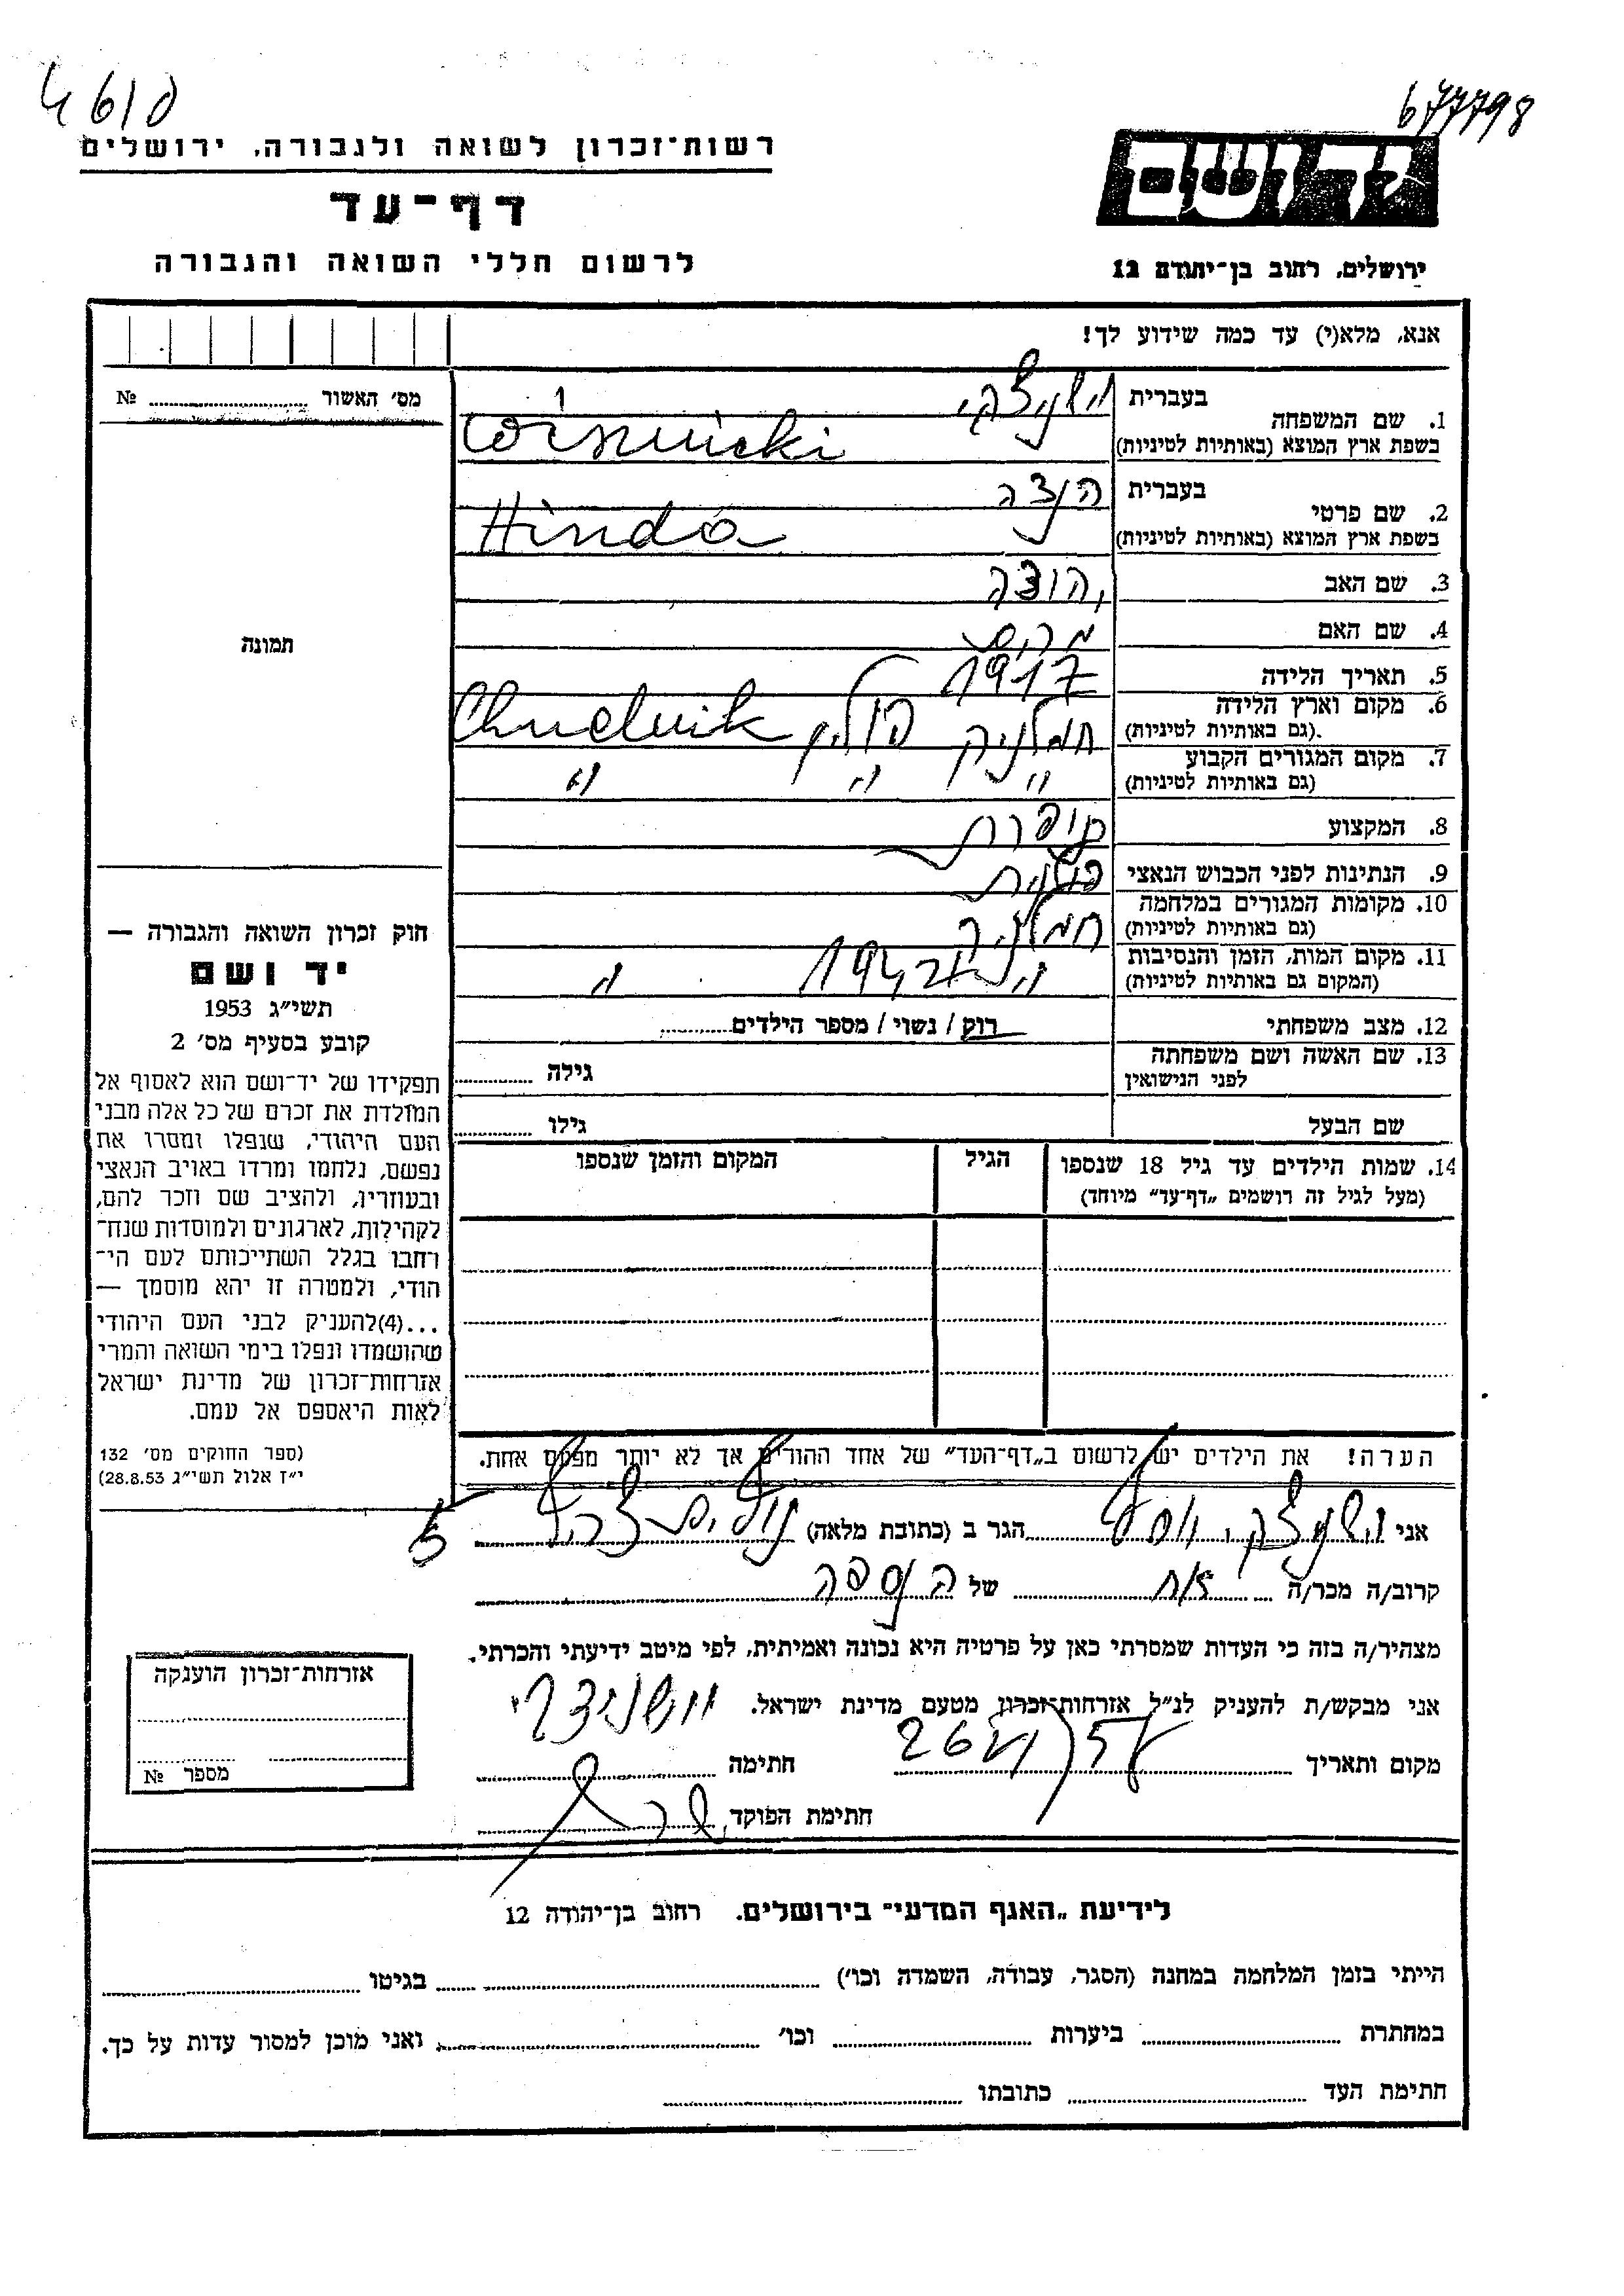 4610
677798
רשות־זכרון לשואה ולגבורה, ירושלים
דף־עד
לרשום חללי השואה והגבורה
יד ושם
ירושלים, רחוב בן־יהודה 12
אנא, מלא(י) עד כמה שידוע לך!
מס׳ האשור № 
1. שם המשפחה
בעברית
בשפת ארץ המוצא (באותיות לטיניות)
2. שם פרטי
בעברית הנדה
בשפת ארץ המוצא (באותיות לטיניות) Hinda
3. שם האב יהודה
4. שם האם מרים
5. תאריך הלידה 1917
6. מקום וארץ הלידה חמלניק פולין
(גם באותיות לטיניות).
7. מקום המגורים הקבוע " " "
(גם באותיות לטיניות)
8. המקצוע תופרת
9. הנתינות לפני הכבוש הנאצי פולנית
10. מקומות המגורים במלחמה חמלניק
(גם באותיות לטיניות)
11. מקום המות, הזמן והנסיבות 1942 "
(המקום גם באותיות לטיניות)
12. מצב משפחתי רוק / נשוי / מספר הילדים
13. שם האשה ושם משפחתה
לפני הנישואין גילה
שם הבעל גילו
14. שמות הילדים עד גיל 18 שנספו הגיל המקום והזמן שנספו
(מעל לגיל זה רושמים „דף־עד" מיוחד)
הערה! את הילדים יש לרשום ב„דף־העד" של אחד ההורים אך לא יותר מפעם אחת.
תמונה
חוק זכרון השואה והגבורה —
יד ושם
תשי״ג 1953
קובע בסעיף מס׳ 2
תפקידו של יד־ושם הוא לאסוף אל
המולדת את זכרם של כל אלה מבני
העם היהודי, שנפלו ומסרו את
נפשם, נלחמו ומרדו באויב הנאצי
ובעוזריו, ולהציב שם וזכר להם,
לקהילות, לארגונים ולמוסדות שנח־
רחבו בגלל השתייכותם לעם הי־
הודי, ולמטרה זו יהא מוסמך —
...(4)להעניק לבני העם היהודי
שהושמדו ונפלו בימי השואה והמרי
אזרחות־זכרון של מדינת ישראל
לאות היאספם אל עמם.
(ספר החוקים מס׳ 132
י״ז אלול תשי״ג 28.8.53)
אני הגר ב (כתובת מלאה) 5
קרוב/ה מכר/ה אח של
מצהיר/ה בזה כי העדות שמסרתי כאן על פרטיה היא נכונה ואמיתית, לפי מיטב ידיעתי והכרתי.
אני מבקש/ת להעניק לנ״ל אזרחות־זכרון מטעם מדינת ישראל.
מקום ותאריך חתימה
חתימת הפוקד
אזרחות־זכרון הוענקה
מספר №
לידיעת „האגף המדעי״ בירושלים. רחוב בן־יהודה 12
הייתי בזמן המלחמה במחנה (הסגר, עבודה, השמדה וכו׳) בגיטו
במחתרת ביערות וכו׳ ואני מוכן למסור עדות על כך.
חתימת העד כתובתו